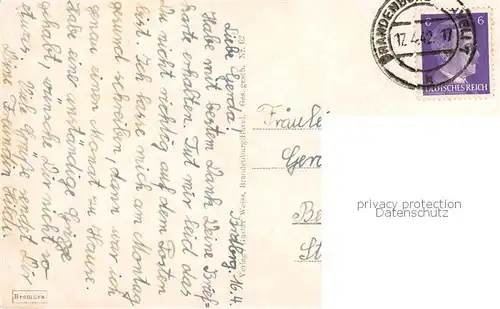 Brdbrg. 16.4.
Liebe Gerda!
Habe mit bestem Dank Deine Brief=
karte erhalten. Tut mir leid das
Du nicht richtig auf dem Posten
bist. Ich lasse mich am Montag
gesund schreiben, dann war ich
genau einen Monat zu Hause.
Habe eine anständige Grippe
gehabt, wünsche Dir nicht so
etwas. Viele Grüße sendet Dir
Deine Hilde
Verlag Gustav Weiss, Brandenburg/Havel. Ges. gesch. Nr. 62
Bromüra
BRANDENBURG
17.4.42. 17
6 6
DEUTSCHES REICH
Fräulei
Ger
Be
St
privacy protection
Datenschutz